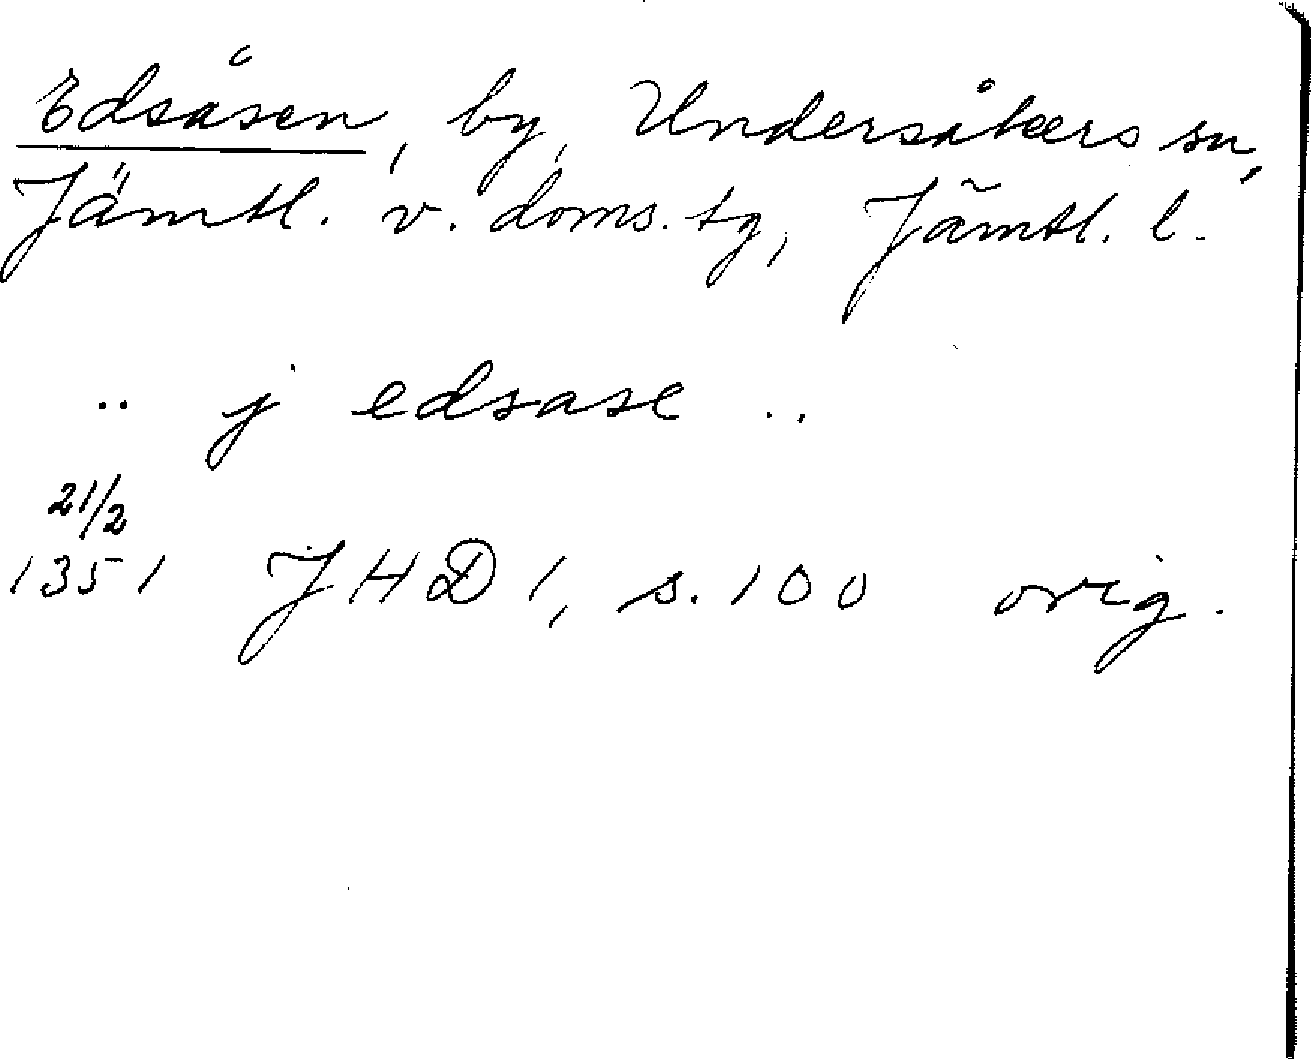 Edsåsen, by, Undersåkers sn,
Jämtl. v. doms. tg, Jämtl. l.
.. j edsase ..
21/2
1351 JHD 1, s. 100 orig.